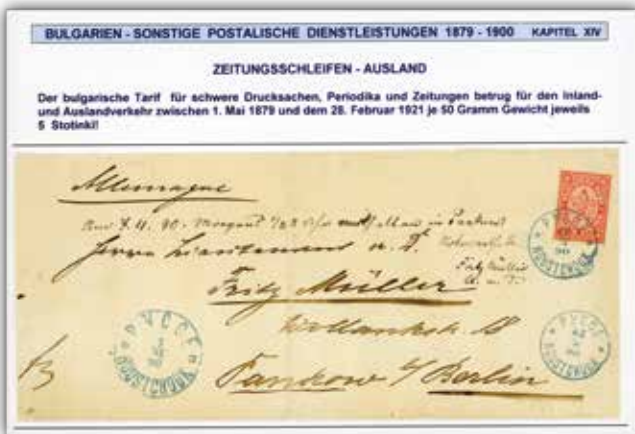 BULGARIEN - SONSTIGE POSTALISCHE DIENSTLEISTUNGEN 1879 - 1900 KAPITEL XIV
ZEITUNGSSCHLEIFEN - AUSLAND
Der bulgarische Tarif für schwere Drucksachen, Periodika und Zeitungen betrug für den Inland-
und Auslandverkehr zwischen 1. Mai 1879 und dem 28. Februar 1921 je 50 Gramm Gewicht jeweils
5 Stotinki!
Allemagne
Herrn Lieutenant a. D.
Fritz Müller
Fritz Müller
Wollankstr. 18
Pankow b/ Berlin
РУССЕ
ROUSTCHOUK
РУССЕ
ROUSTCHOUK
РУССЕ
ROUSTCHOUK